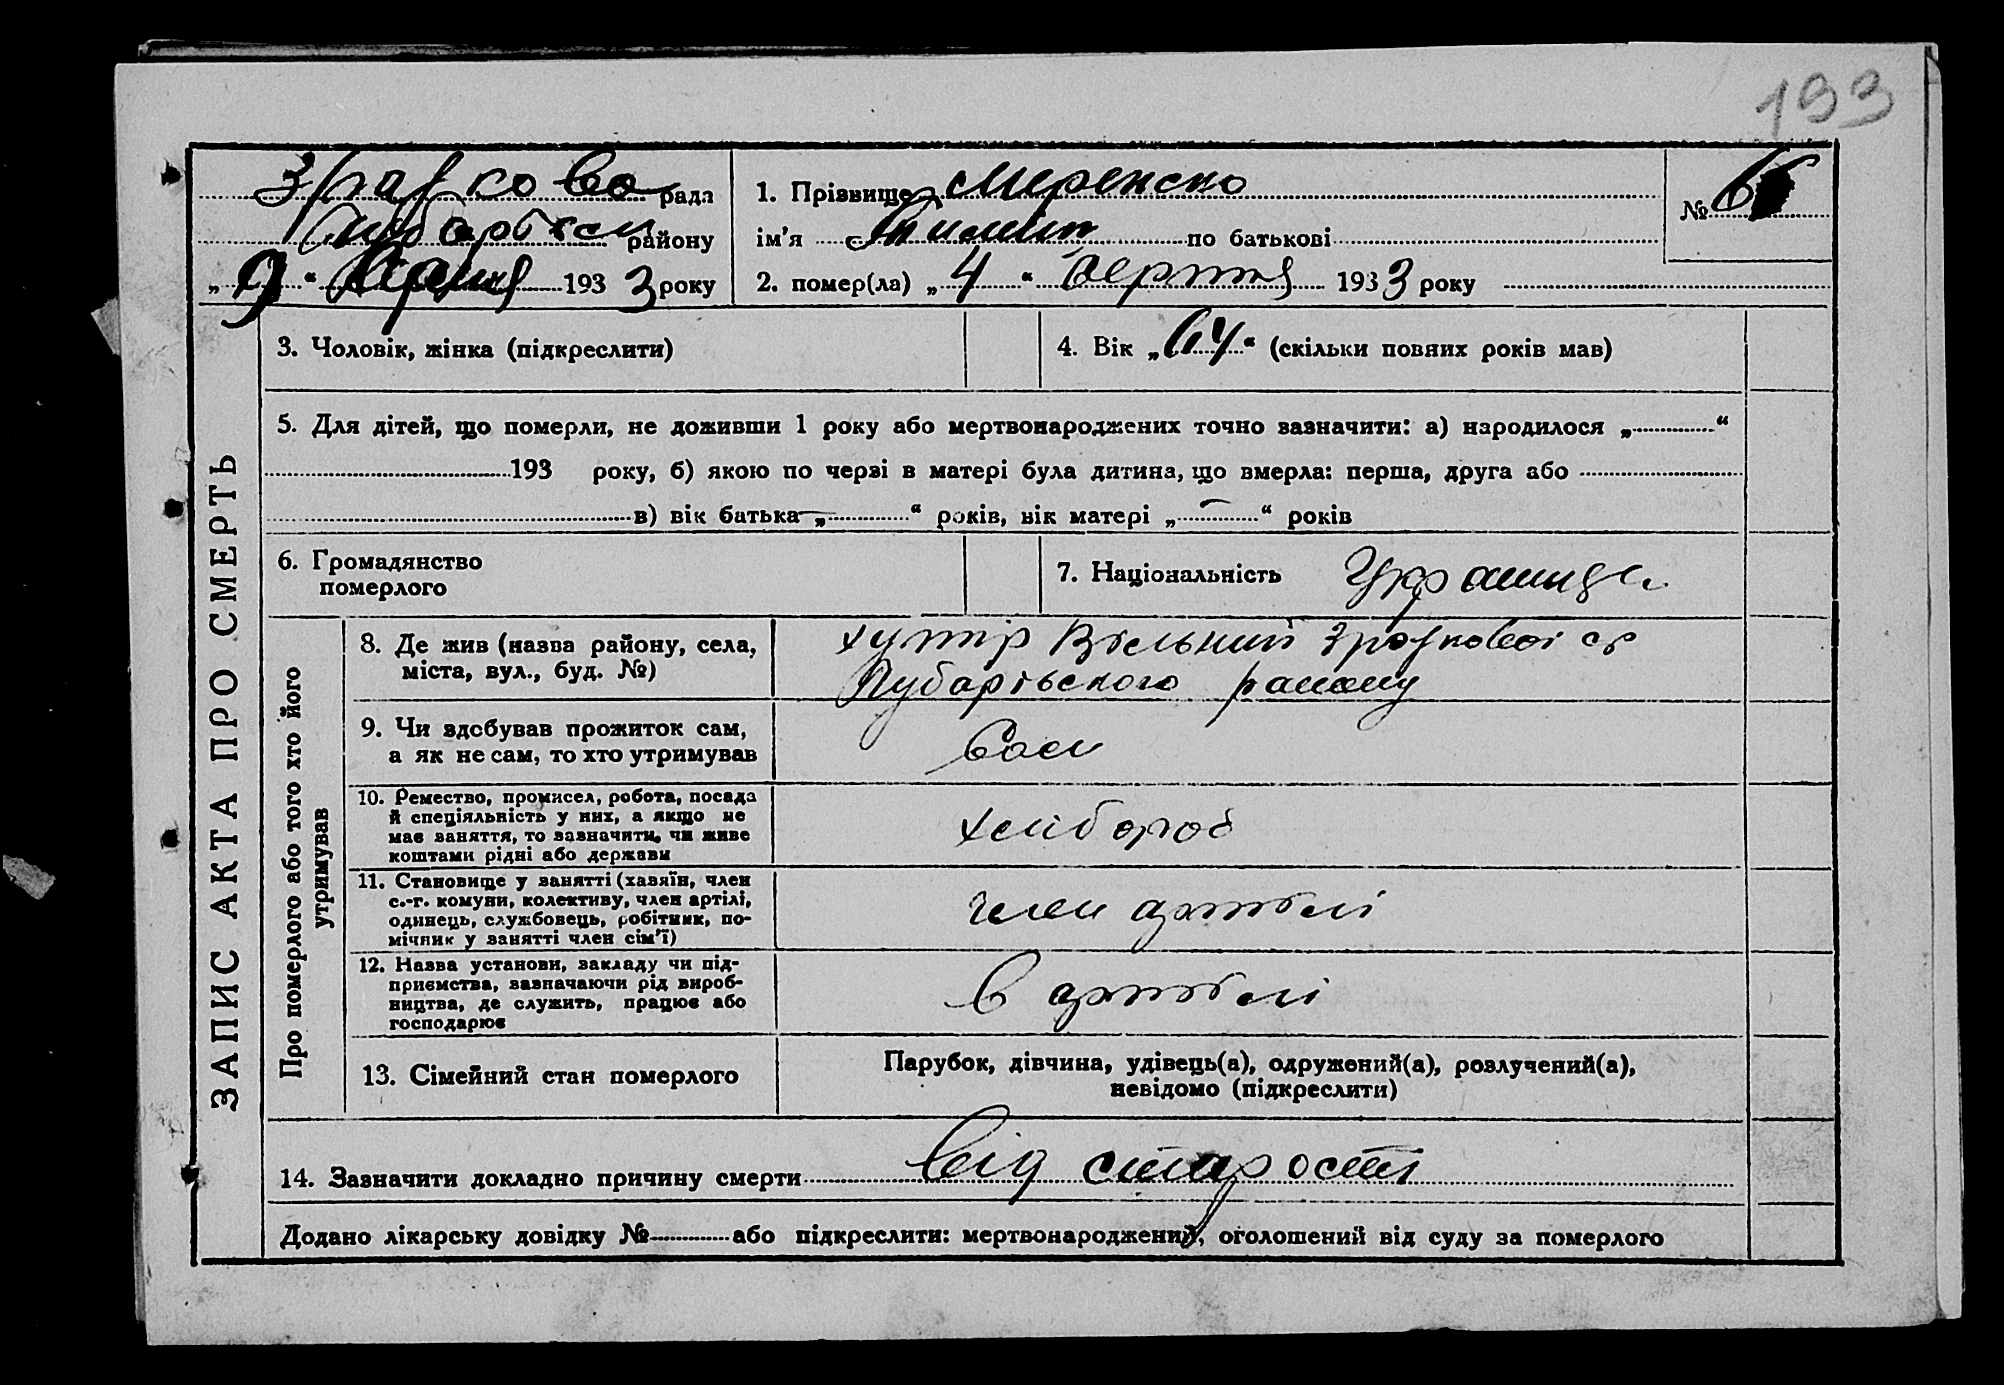 193
Зрайкова рада
району
„ 9 “ 193 3 року
1. Прізвище Меренско
ім’я по батькові
2. помер(ла) „ 4 “ березня 193 3 року
№ 6
3. Чоловік, жінка (підкреслити)
4. Вік „ 64 “ (скільки повних років мав)
5. Для дітей, що померли, не доживши 1 року або мертвонароджених точно зазначити: а) народилося „ “
193 року, б) якою по черзі в матері була дитина, що вмерла: перша, друга або
в) вік батька „ “ років, вік матері „ “ років
6. Громадянство
померлого
7. Національність Українец
ЗАПИС АКТА ПРО СМЕРТЬ
Про померлого або того хто його
утримував
8. Де жив (назва району, села,
міста, вул., буд. №)
хутір Вільний
району
9. Чи здобував прожиток сам,
а як не сам, то хто утримував
сам
10. Ремество, промисел, робота, посада
й спеціяльність у них, а якщо не
має заняття, то зазначити, чи живе
коштами рідні або держави
хлібороб
11. Становище у занятті (хазяїн, член
с.-г. комуни, колективу, член артілі,
одинець, службовець, робітник, по-
мічник у занятті член сім’ї)
член артілі
12. Назва установи, закладу чи під-
приємства, зазначаючи рід вироб-
ництва, де служить, працює або
господарює
в артілі
13. Сімейний стан померлого
Парубок, дівчина, удівець(а), одружений(а), розлучений(а),
невідомо (підкреслити)
14. Зазначити докладно причину смерти від старости
Додано лікарську довідку № або підкреслити: мертвонароджений, оголошений від суду за померлого